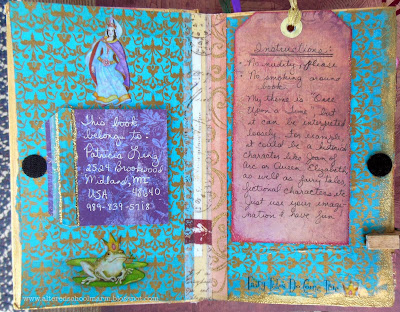 this book
belongs to:
Patricia King
2524 Brookwood
Midland, MI
48640
USA
989-839-5718
Instructions:
No nudity please
No smoking around
book.
My theme is "Once
Upon a Time", but
it can be interpreted
loosely. For example
it could be a historical
character like Joan of
Arc or Queen Elizabeth
as well as fairy tales,
fictional characters etc.
Just use your imagi-
nation & have fun
Fairy Tales Do Come True
www.alteredschoolmarm.blogspot.com